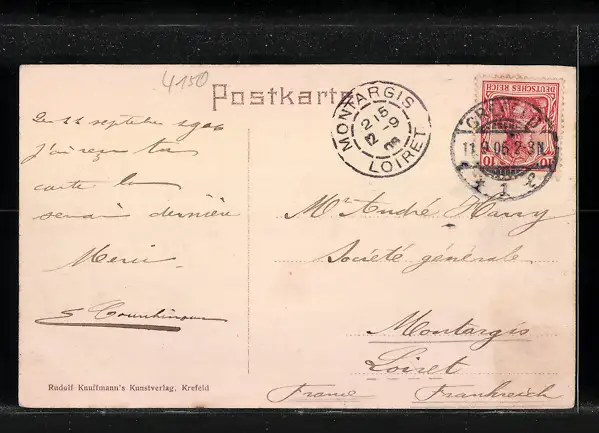 4150
Postkarte
MONTARGIS
LOIRET
DEUTSCHES REICH
10
10
CREFELD
11.9.06.2-3N
1
septembre 1906
J'ai reçu ta
carte la
dernière
Merci
Mr André Harry
Société générale
Montargis
Loiret
France Frankreich
Rudolf Knuffmann's Kunstverlag, Krefeld